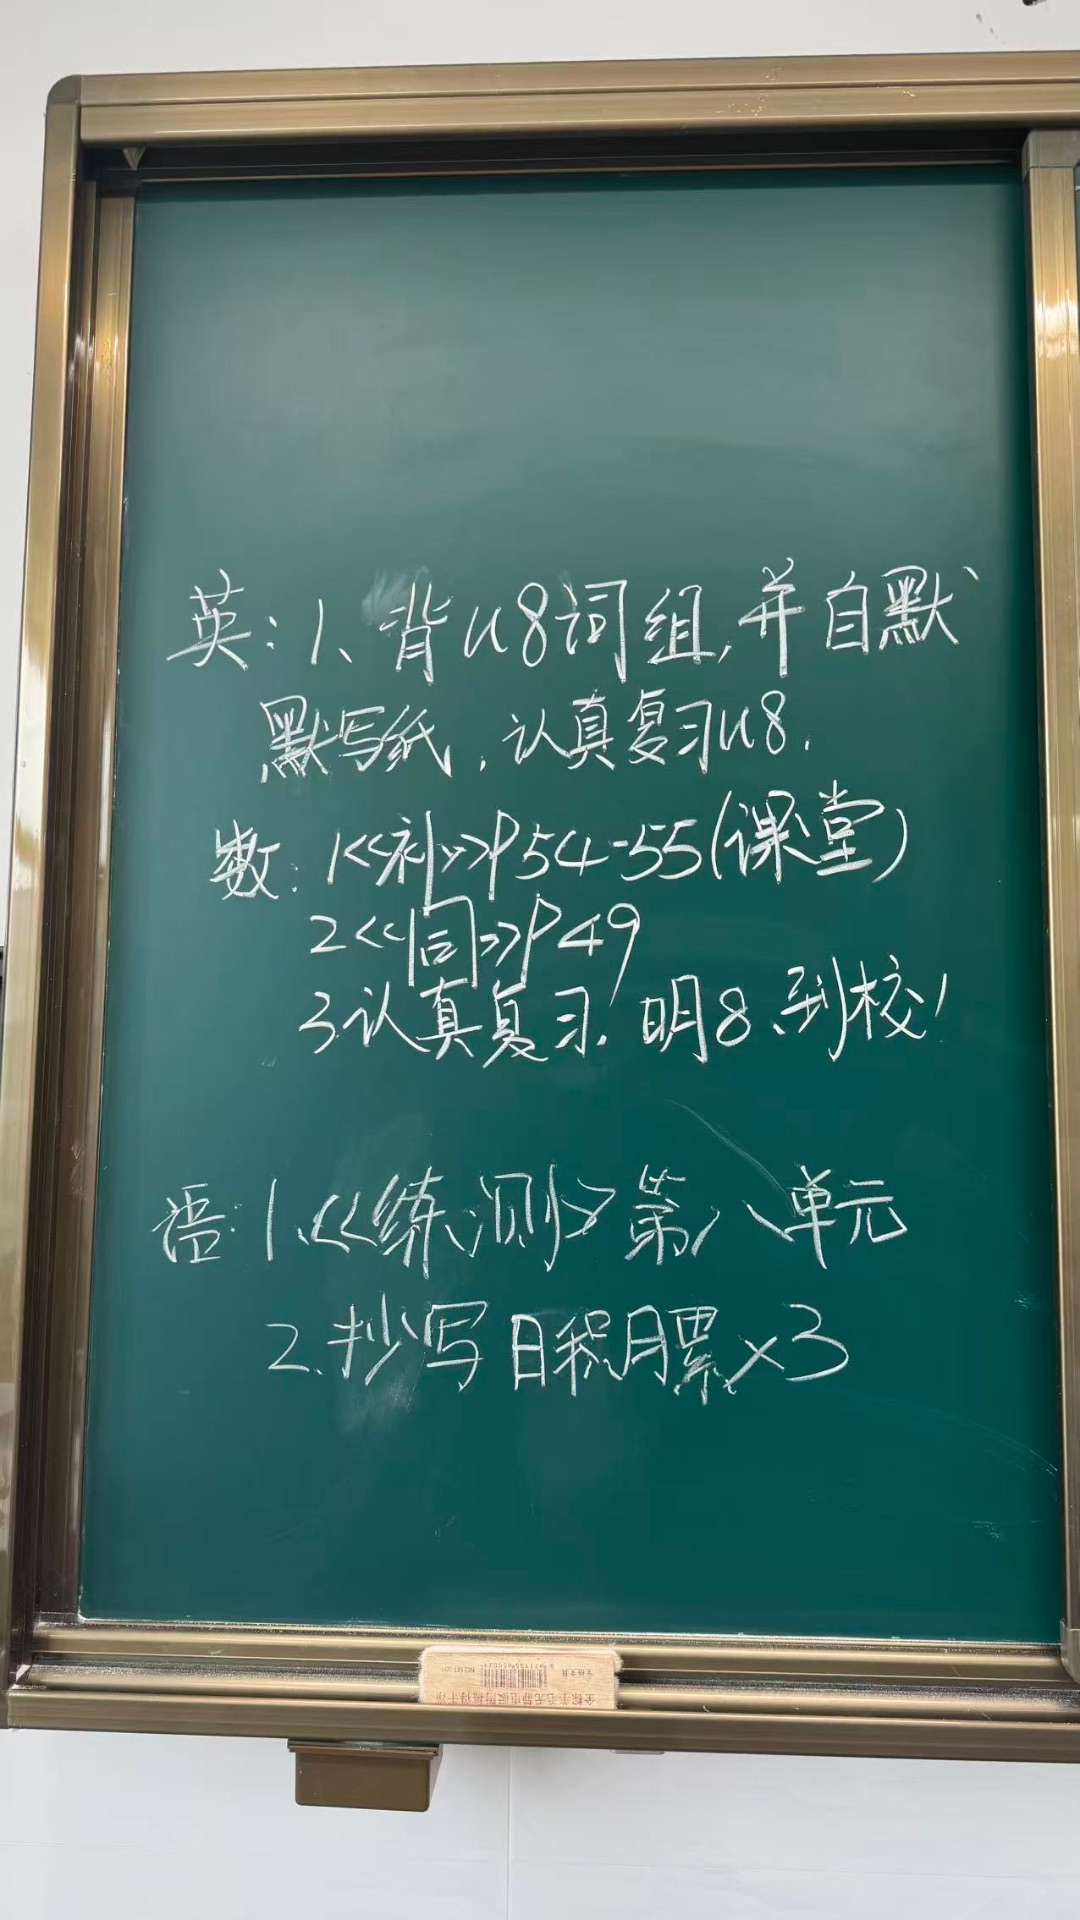 英：1、背U8词组，并自默
默写纸，认真复习U8.
数：1<<补>>P54-55(课堂)
2<<同>>P49
3.认真复习.明8:到校!
语：1.<<练测>>第八单元
2.抄写日积月累×3